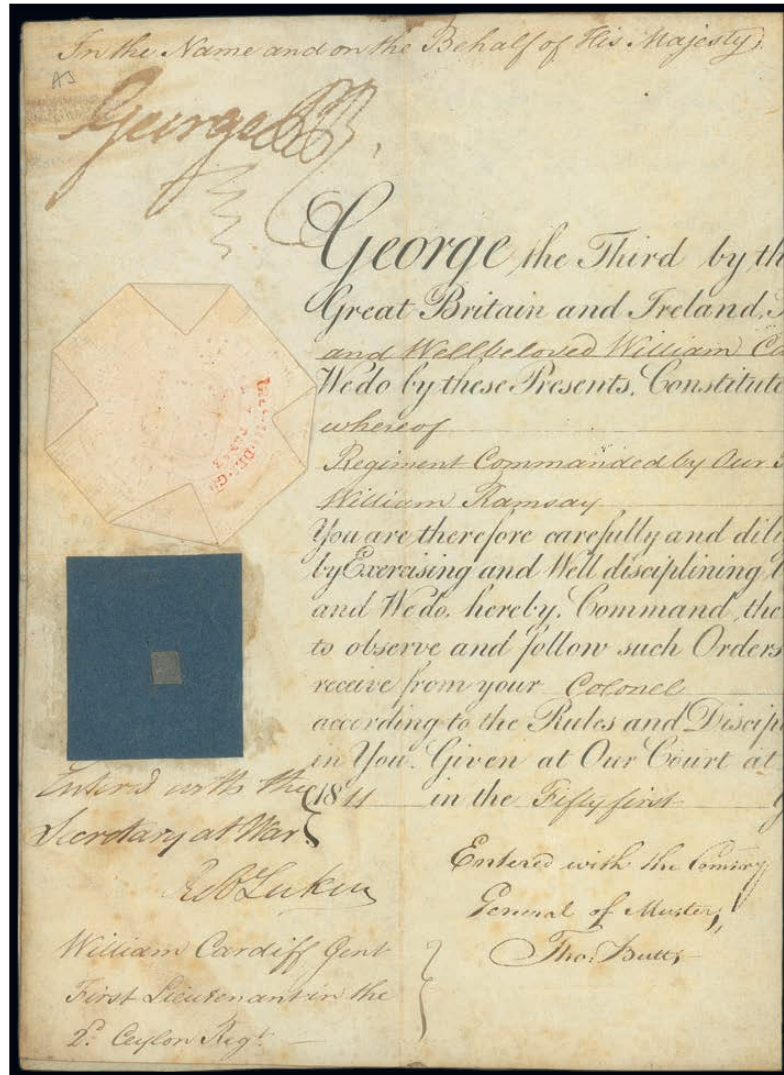 In the Name and on the Behalf of His Majesty.
AS
George PR
George the Third by th
Great Britain and Ireland,
and Wellbeloved William Ca
We do by these Presents, Constitute
whereof
Regiment Commanded by Our
William Ramsay
You are therefore carefully and dili
by Exercising and Well disciplining
and We do, hereby, Command, the
to observe and follow such Orders
receive from your Colonel
according to the Rules and Discipl
in You. Given at Our Court at
1811 in the Fifty first
Enter'd with the
Secretary at War
Entered with the Comsary
General of Musters,
Tho: Butts
William Cardiff Gent
First Lieutenant in the
2d. Ceylon Regt.